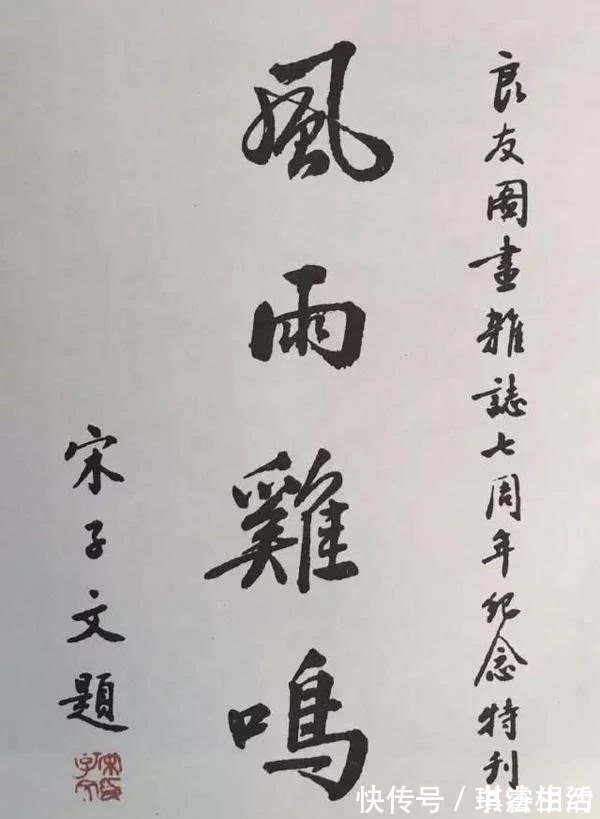 良友圖畫雜誌七周年紀念特刊
風雨雞鳴
宋子文題
快传号／琪濤相濤